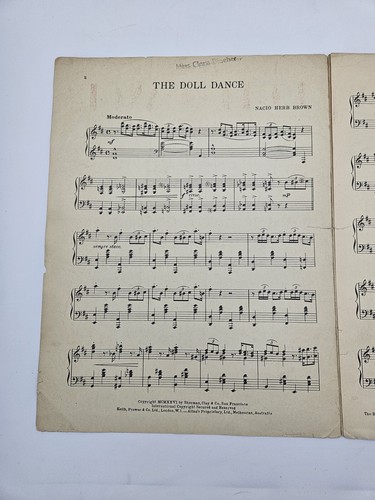 THE DOLL DANCE
NACIO HERB BROWN
Moderato
mf
sempre stacc.
Copyright MCMXXVI by Sherman, Clay & Co. San Francisco
International Copyright Secured and Reserved
Keith, Prowse & Co. Ltd., London, W.1.—Allan's Proprietary, Ltd., Melbourne, Australia